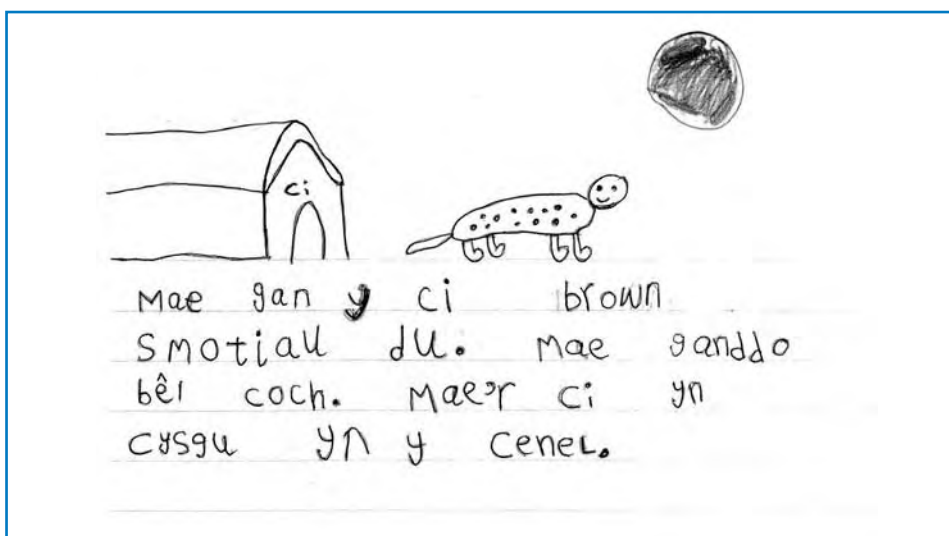 ci
Mae gan y ci brown
smotiau du. Mae ganddo
bêl coch. Mae'r ci yn
cysgu yn y cenel.